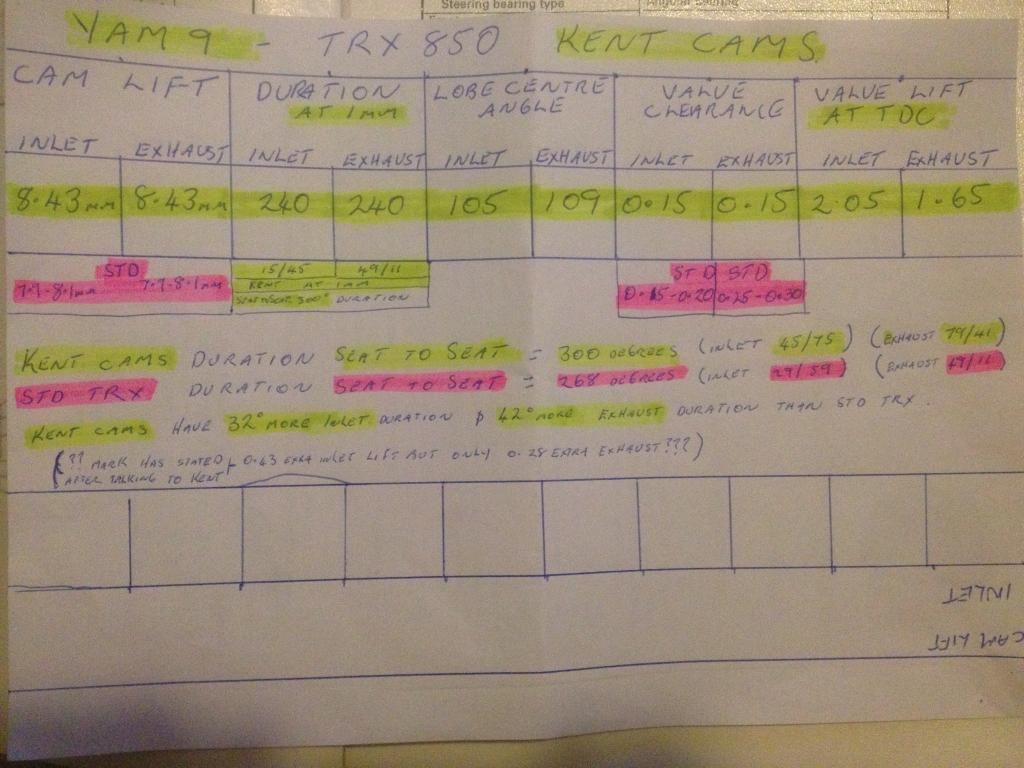 Steering bearing type
YAM 9 - TRX 850 KENT CAMS.
CAM LIFT DURATION AT 1MM LOBE CENTRE ANGLE VALVE CLEARANCE VALVE LIFT AT TDC
INLET EXHAUST INLET EXHAUST INLET EXHAUST INLET EXHAUST INLET EXHAUST
8.43mm 8.43mm 240 240 105 109 0.15 0.15 2.05 1.65
STD 15/45 49/11 STD STD
7.7-8.1mm 7.7-8.1mm KENT AT 1MM 0.15-0.20 0.25-0.30
SEAT TO SEAT 300° DURATION
KENT CAMS DURATION SEAT TO SEAT = 300 DEGREES (INLET 45/75) (EXHAUST 79/41)
STD TRX DURATION SEAT TO SEAT = 268 DEGREES (INLET 29/59) (EXHAUST 49/11)
KENT CAMS HAVE 32° MORE INLET DURATION & 42° MORE EXHAUST DURATION THAN STD TRX.
(?? MARK HAS STATED 0.43 EXRA INLET LIFT BUT ONLY 0.28 EXTRA EXHAUST???)
AFTER TALKING TO KENT
INLET
CAM LIFT